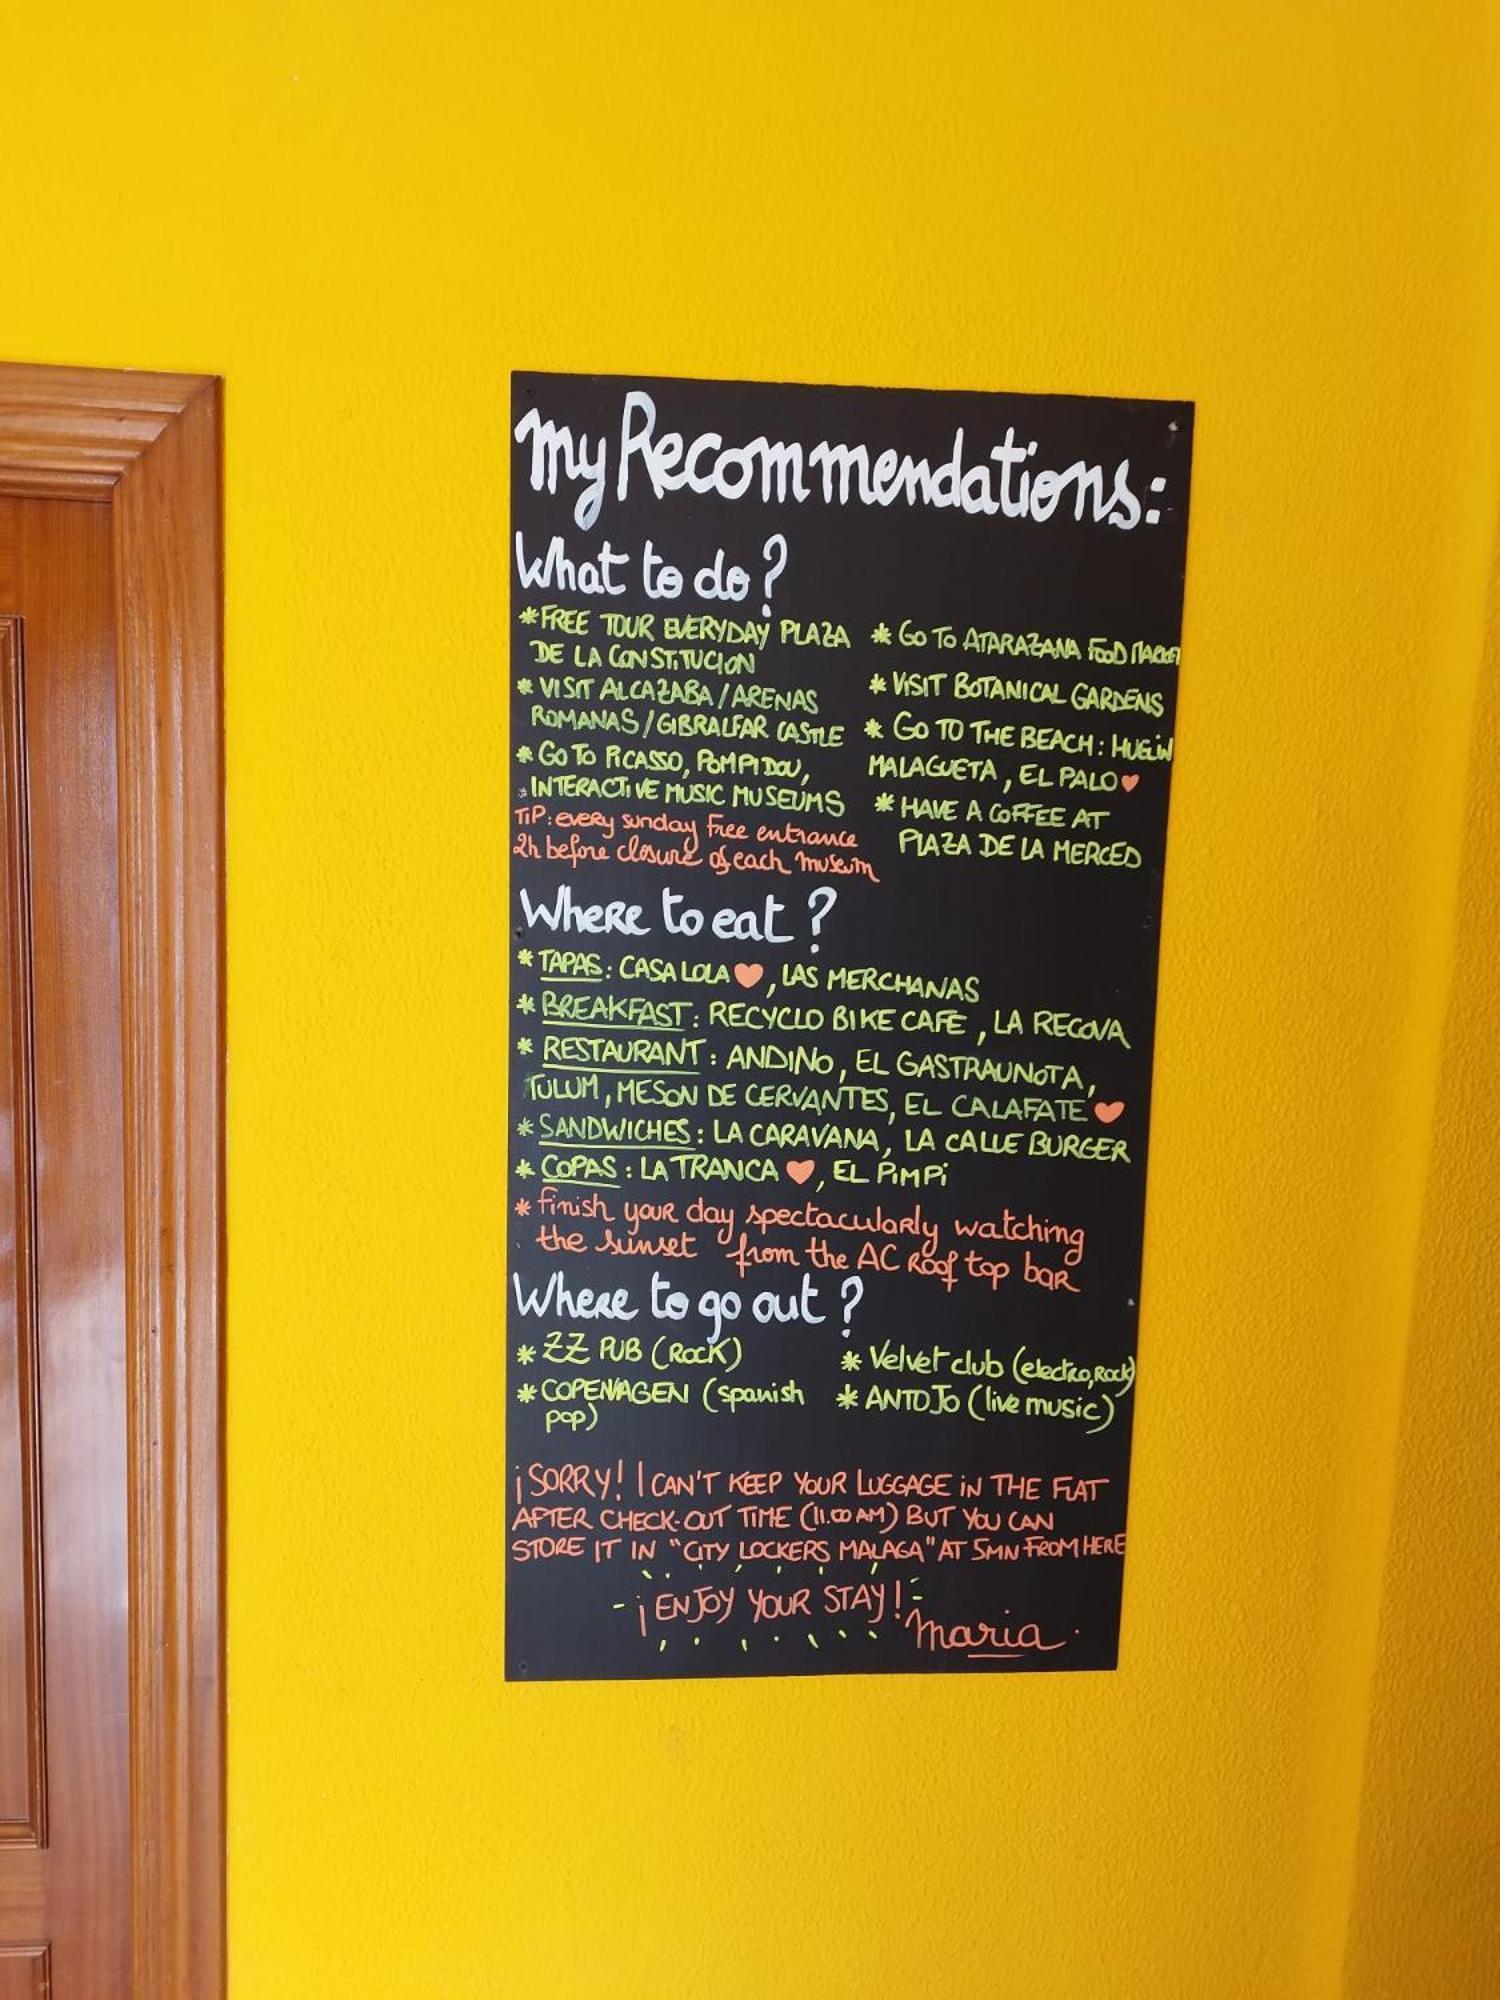 my Recommendations:
What to do?
* FREE TOUR EVERYDAY PLAZA
DE LA CONSTITUCION
* VISIT ALCAZABA / ARENAS
ROMANAS / GIBRALFAR CASTLE
* GO TO PICASSO, POMPIDOU,
INTERACTIVE MUSIC MUSEUMS
TIP: every sunday Free entrance
2h before closure of each museum
* GO TO ATARAZANA FOOD MARKET
* VISIT BOTANICAL GARDENS
* GO TO THE BEACH: HUELIN
MALAGUETA, EL PALO ♥
* HAVE A COFFEE AT
PLAZA DE LA MERCED
Where to eat?
* TAPAS: CASA LOLA ♥, LAS MERCHANAS
* BREAKFAST: RECYCLO BIKE CAFE, LA RECOVA
* RESTAURANT: ANDINO, EL GASTRAUNOTA,
TULUM, MESON DE CERVANTES, EL CALAFATE ♥
* SANDWICHES: LA CARAVANA, LA CALLE BURGER
* COPAS: LA TRANCA ♥, EL PIMPI
* finish your day spectacularly watching
the sunset from the AC Roof top bar
Where to go out?
* ZZ PUB (ROCK)
* COPENAGEN (spanish
pop)
* Velvet club (electro, rock)
* ANTOJO (live music)
¡SORRY! I CAN'T KEEP YOUR LUGGAGE IN THE FLAT
AFTER CHECK-OUT TIME (11.00 AM) BUT YOU CAN
STORE IT IN "CITY LOCKERS MALAGA" AT 5MN FROM HERE
¡ENJOY YOUR STAY!
Maria